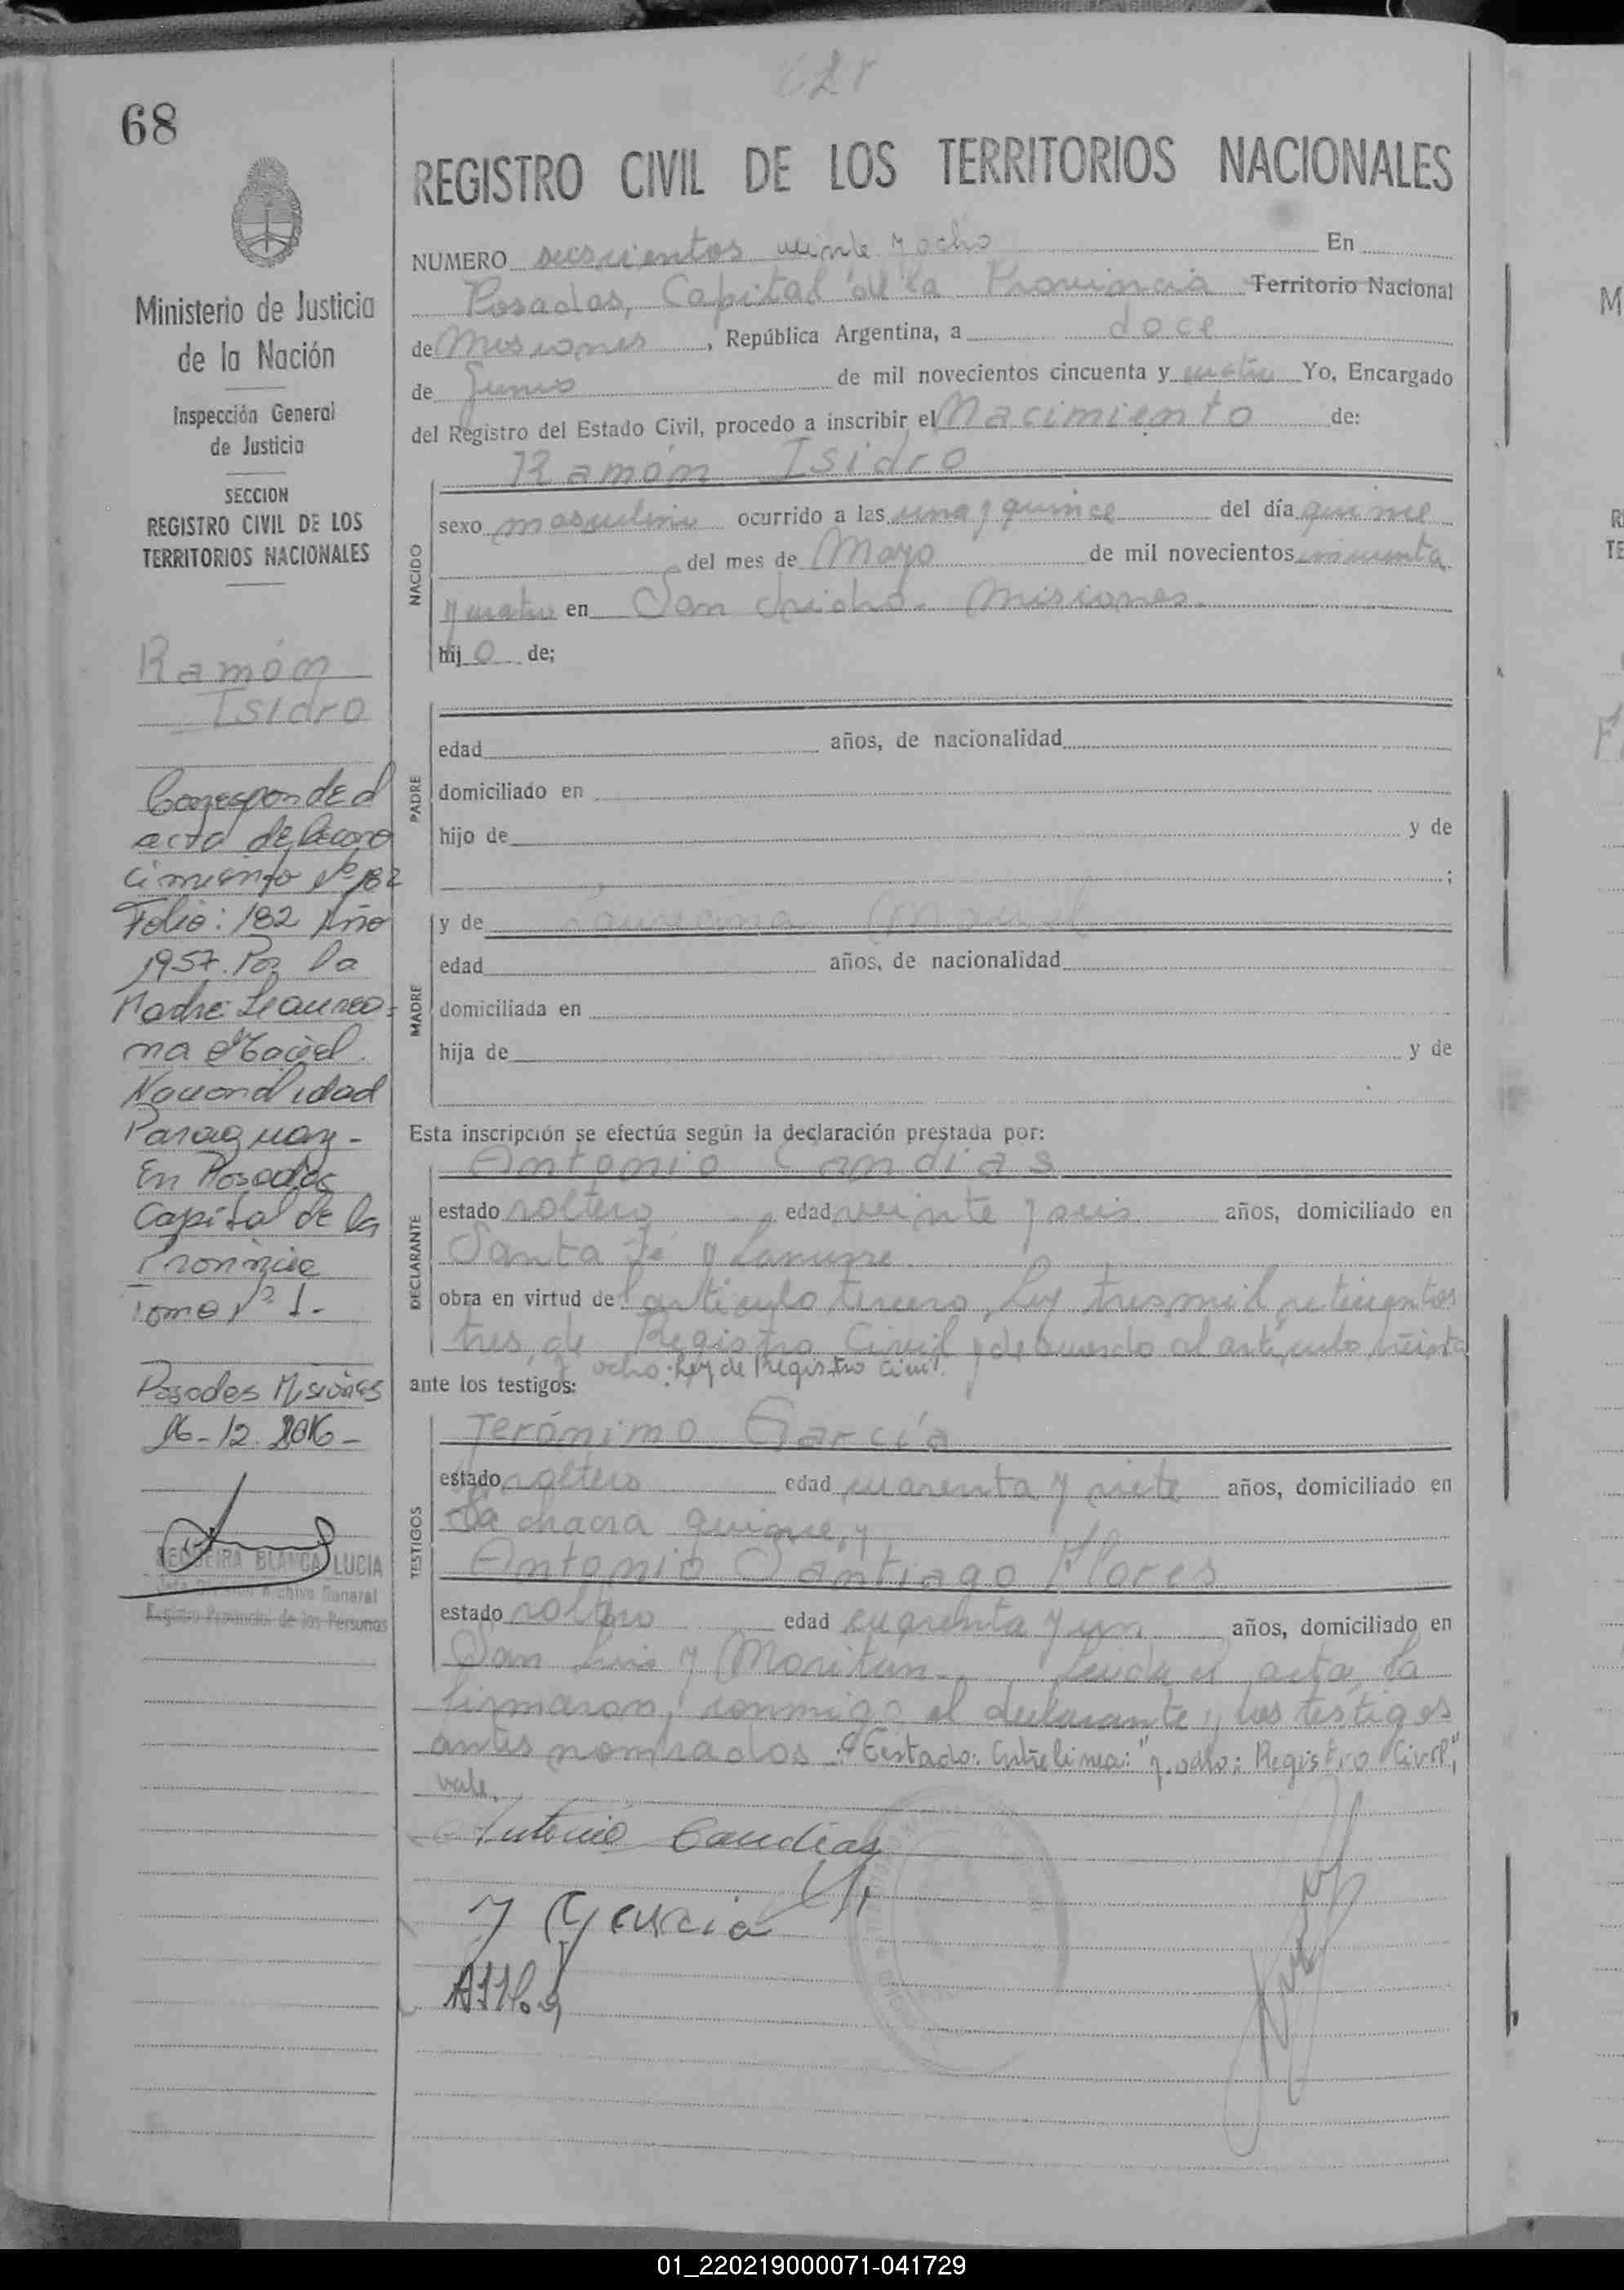 628
68
REGISTRO CIVIL DE LOS TERRITORIOS NACIONALES
NUMERO seiscientos veinte y ocho En
Posadas, Capital de la Provincia Territorio Nacional
de Misiones, República Argentina, a doce
de Junio de mil novecientos cincuenta y cuatro Yo, Encargado
del Registro del Estado Civil, procedo a inscribir el Nacimiento de:
Ramón Isidro
NACIDO
sexo masculino ocurrido a las una y quince del día quince
del mes de Mayo de mil novecientos cincuenta
y cuatro en San Isidro. Misiones.
hij o de;
PADRE
edad años, de nacionalidad
domiciliado en
hijo de y de
;
MADRE
y de Laureana Maciel
edad años, de nacionalidad
domiciliada en
hija de y de
Esta inscripción se efectúa según la declaración prestada por:
Antonio Candias
DECLARANTE
estado soltero edad veinte y seis años, domiciliado en
Santa Fé y Lanusse
obra en virtud del artículo tercero, Ley tres mil setecientos
tres, de Registro Civil y de acuerdo al artículo treinta
y ocho: Ley de Registro Civil.
ante los testigos:
TESTIGOS
Jerónimo García
estado soltero edad cuarenta y siete años, domiciliado en
La chacra quince, y
Antonio Santiago Flores
estado soltero edad cuarenta y un años, domiciliado en
San Luis y Leída el acta, la
firmaron, conmigo, el declarante y los testigos
antes nombrados. Entre linea: "y ocho: Registro Civil,"
vale.
Antonio Candias
J Garcia
Ministerio de Justicia
de la Nación
Inspección General
de Justicia
SECCION
REGISTRO CIVIL DE LOS
TERRITORIOS NACIONALES
Ramón
Isidro
Corresponde al
acta de Recono
cimiento Nº 182
Folio: 182 Año
1957. Por la
Madre: Leaurea-
na Maciel.
Nacionalidad
Paraguay-
En Posadas
Capital de la
Provincia
Tomo Nº 1-
Posadas Misiones
16-12-2016-
BLANCA LUCIA
Archivo General
Registro Provincial de las Personas
M
R
TE
F
01_220219000071-041729